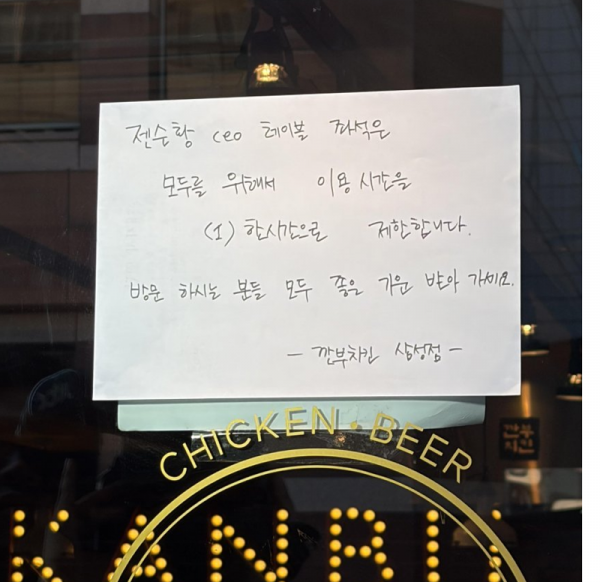 젠슨황 CEO 테이블 좌석은
모두를 위해서 이용시간을
(1) 한시간으로 제한합니다.
방문 하시는 분들 모두 좋은 기운 받아 가세요.
- 깐부치킨 삼성점 -
CHICKEN · BEER
KANBU
깐부
치킨